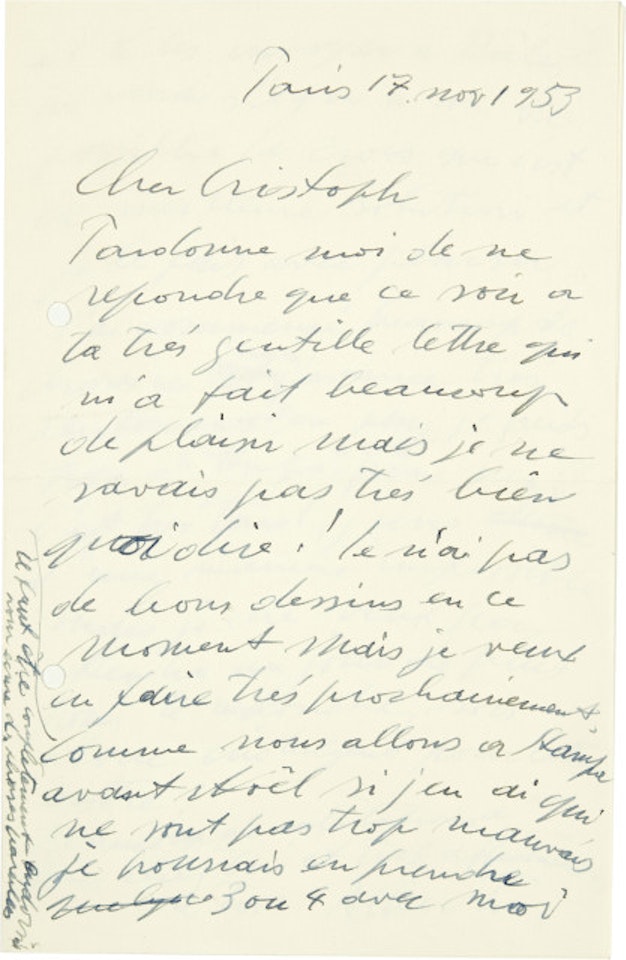 Paris 17. nov 1953
Cher Cristoph
Pardonne moi de ne
repondre que ce soir a
ta trés gentille lettre qui
m'a fait beaucoup
de plaisir mais je ne
savais pas trés bien
quoi dire! Je n'ai pas
de bons dessins en ce
moment mais je veux
en faire trés prochainement,
comme nous allons a Stampa
avant Noël si j'en ai qui
ne sont pas trop mauvais
je pourrais en prendre
3 ou 4 avec moi
il faut être completement